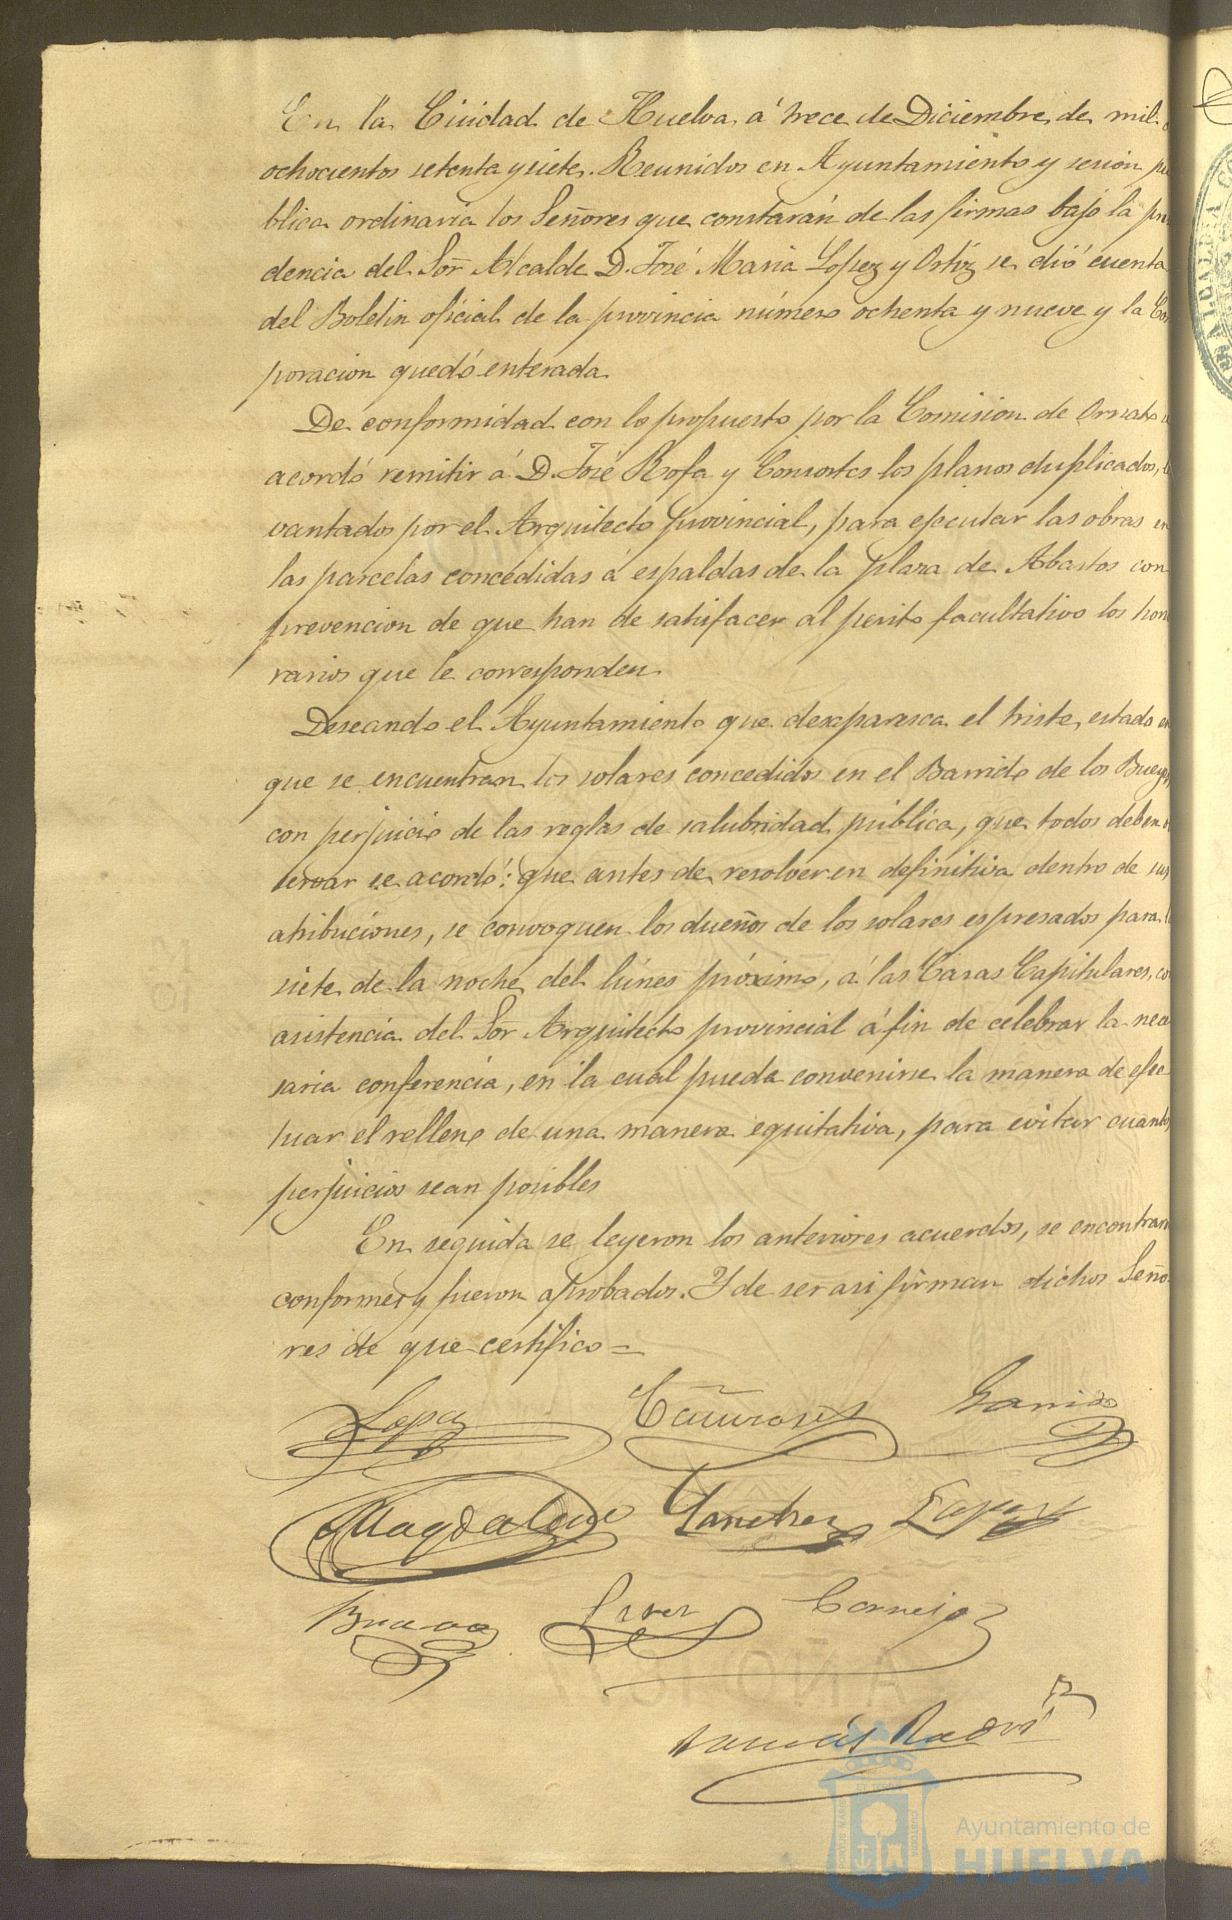 En la Ciudad de Huelva á trece de Diciembre de mil
ochocientos setenta y siete. Reunidos en Ayuntamiento y sesion pu
blica ordinaria los Señores que constarán de las firmas bajo la pre
dencia del Sor Alcalde D. José Maria Lopez y Ortiz se dió cuenta
del Boletin oficial de la provincia número ochenta y nueve y la Cor
poracion quedó enterada
De conformidad con lo propuesto por la Comision de Ornato
acordó remitir á D. José Rofa y Consortes los planos duplicados, le
vantados por el Arquitecto provincial, para ejecutar las obras en
las parcelas concedidas á espaldas de la plaza de Abastos con
prevencion de que han de satisfacer al perito facultativo los hono
rarios que le corresponden
Deseando el Ayuntamiento que desaparesca el triste estado en
que se encuentran los solares concedidos en el Barrido de los Bueyes
con perjuicio de las reglas de salubridad pública, que todos deben
servar se acordó: que antes de resolver en definitiva dentro de sus
atribuciones, se convoquen los dueños de los solares espresados para
siete de la noche del lúnes próximo, á las Casas Capitulares, co
asistencia del Sor Arquitecto provincial á fin de celebrar la nece
saria conferencia, en la cual pueda convenirse la manera de efec
tuar el relleno de una manera equitativa, para evitar cuantos
perjuicios sean posibles
En seguida se leyeron los anteriores acuerdos, se encontraron
conformes y fueron aprobados. Y de ser asi firman dichos Seño
res de que certifico =
Lopez Garrido
Magdalena Sanchez Lopez
Bravo Perez Cornejo
AÑO 1877
Ayuntamiento de
HUELVA